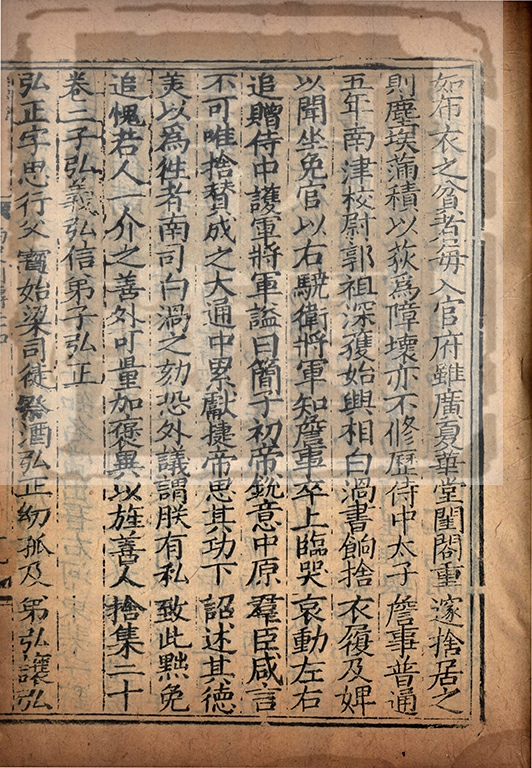 如布衣之貧者每入官府雖廣夏華堂閨閤重邃捨居之
則塵埃蒲積以荻爲障壞亦不修歷侍中太子詹事普通
五年南津校尉郭祖深獲始興相白渦書餉捨衣履及婢
以聞坐免官以右驍衛將軍知詹事卒上臨哭哀動左右
追贈侍中護軍將軍謚曰簡子初帝銳意中原羣臣咸言
不可唯捨賛成之大通中累獻捷帝思其功下詔述其德
美以為徃者南司白渦之劾恐外議謂朕有私致此黜免
追愧若人一介之善外可量加褒異以旌善人捨集二十
卷二子弘義弘信弟子弘正
弘正字思行父寶始梁司徒祭酒弘正幼孤及弟弘讓弘